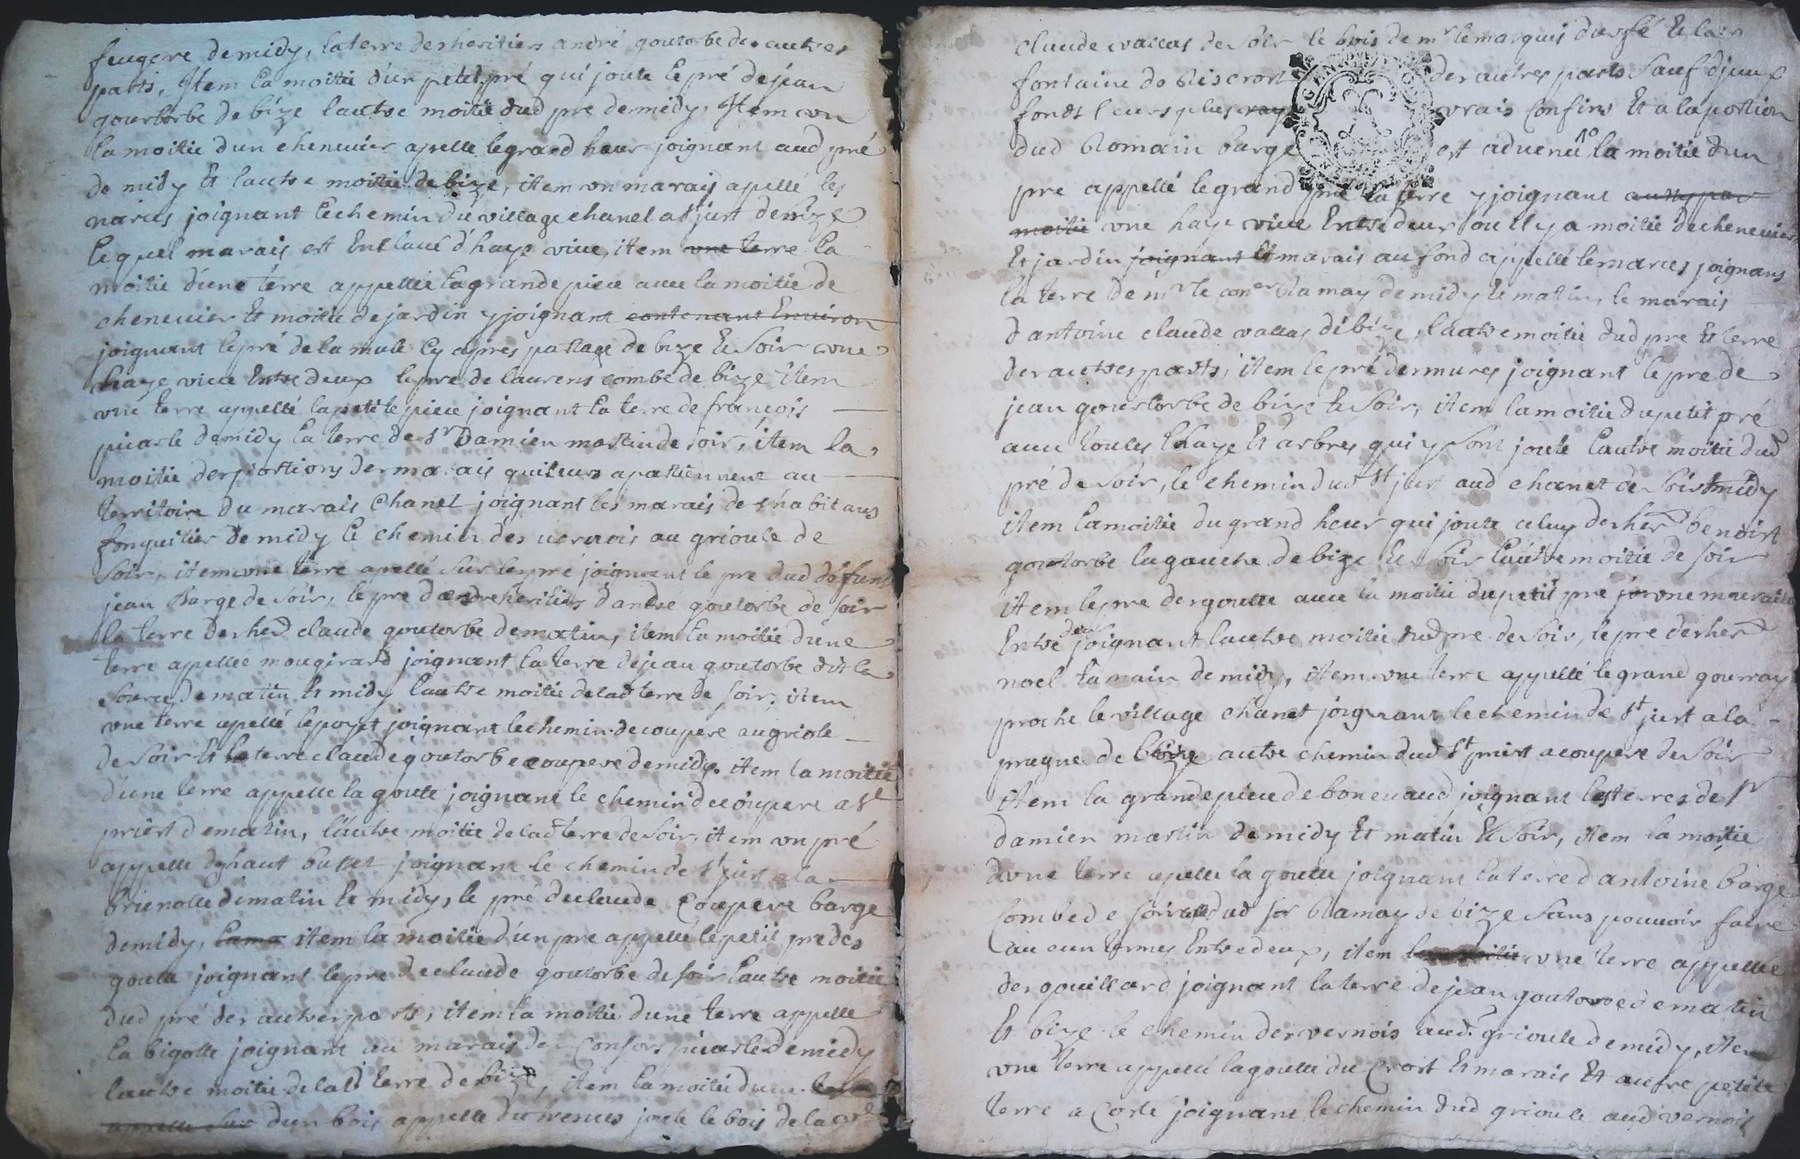 feugere de midy, la terre des heritiers andré goutorbe des autres
parts, Item la moitié d'un petit pré qui joute le pré de jean
gourtorbe de bize lautre moitié dud pré de midy, Item un
la moitié dun chenevier apellé le grand heur joignant aud pré
de midy Et lautre moitié de bize, item un marais apellé les
narces joignant le chemin du village chanel a st just de bize
lequel marais est Enclavé d'haye vive, item une terre la
moitié d'une terre appellée la grande piece avec la moitié de
chenevier Et moitié de jardin y joignant contenant Environ
joignant le pré de la mule cy apres partagé de bize Et soir une
haye vive Entre deux le pré de laurens combe de bize item
une terre appellé la petite piece joignant la terre de françois
de midy la terre de sr Damien martin de soir, item la
moitié des portions de marais qui leurs apartiennent au
territoire du marais Chanel joignant les marais des habitans
de midy le chemin des vernois au grioule de
soir, item une terre apellé sur le pré joignant le pre dud défunt
jean Barge de soir, le pré d'andre heritiers d'andré goutorbe de soir
la terre des herd claude goutorbe de matin, item la moitié dune
terre apellée mougirard joignant la terre de jean goutorbe dit la
de matin Et midy lautre moitié de lad terre de soir, item
une terre apellé le poyet joignant le chemin de coupere au griole
de soir Et la terre claude goutorbe coupere de midy, item la moitié
d'une terre appellé la goute joignant le chemin de coupere a st
priest de matin, lautre moitié de lad terre de soir, item un pré
appellé joignant le chemin de st just a la
de matin Et midy, le pré de claude Coupere barge
de midy, la mo item la moitié d'un pré appellé le petit pré des
goute joignant le pre de claude goutorbe de soir lautre moitié
dud pré des autres parts, item la moitié dune terre appellé
la bigotte joignant au marais de de midy
lautre moitié de lad terre de bize, item la moitié dune
appellé dun bois appellé du joute le bois de la
claude vallas de soir le bois de mr le marquis durfé Et la
fontaine de des autres parts sauf d'jceux
fonds leurs plus vrais Confins Et a la portion
dud Romain barge est advenu la moitié dun
pre appellé le grand pré la terre y joignant
moitié une haye vive Entre deux ou il y a moitié de chenevier
Et jardin joignant Et marais au fond appellé le narces joignans
la terre de mr le coner Ramay de midy Et matin, le marais
d'antoine claude vallas de bize, lautre moitié dud pre Et terre
des autres parts, item le pré des mures joignant le pre de
jean gourtorbe de bize Et soir, item la moitié du petit pré
avec toutes l'haye Et arbres qui y sont joute lautre moitié dud
pré de soir, le chemin dud st just aud chanet de soir midy
item la moitié du grand heur qui joute celuy des herd benoist
goutorbe lagauche de bize Et soir lautre moitié de soir
item le pre des goutte avec la moitié du petit pré une muraille
Entre deux joignant lautre moitié dud pre de soir, le pré des herd
noel tamain de midy, item une terre appellé le grand gourray
proche le village chanet joignant le chemin de st just a la
prugne de bize autre chemin dud st priest a coupere de soir
item la grande piece de bonevaud joignant les terres de sr
damien martin de midy Et matin Et soir, item la moitié
d'une terre apellé la goutte joignant la terre d'antoine barge
Combe de soir dud sor Ramay de bize sans pouvoir faire
aucun termes Entre deux, item la moitié une terre appellée
des gouillard joignant la terre de jean goutorbe de matin
Et bize le chemin des vernois aud grioule de midy, item
une terre appellé la goutte du Crost Et marais Et autre petite
terre a Coste joignant le chemin dud grioule aud vernois